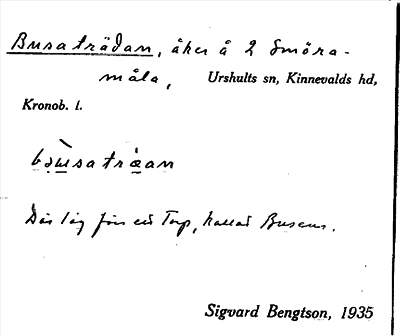 Busaträdan, åker å 2 Småra-
måla, Urshults sn, Kinnevalds hd,
Kronob. l.
Där låg förr ett Torp, kallat Busens.
Sigvard Bengtson, 1935